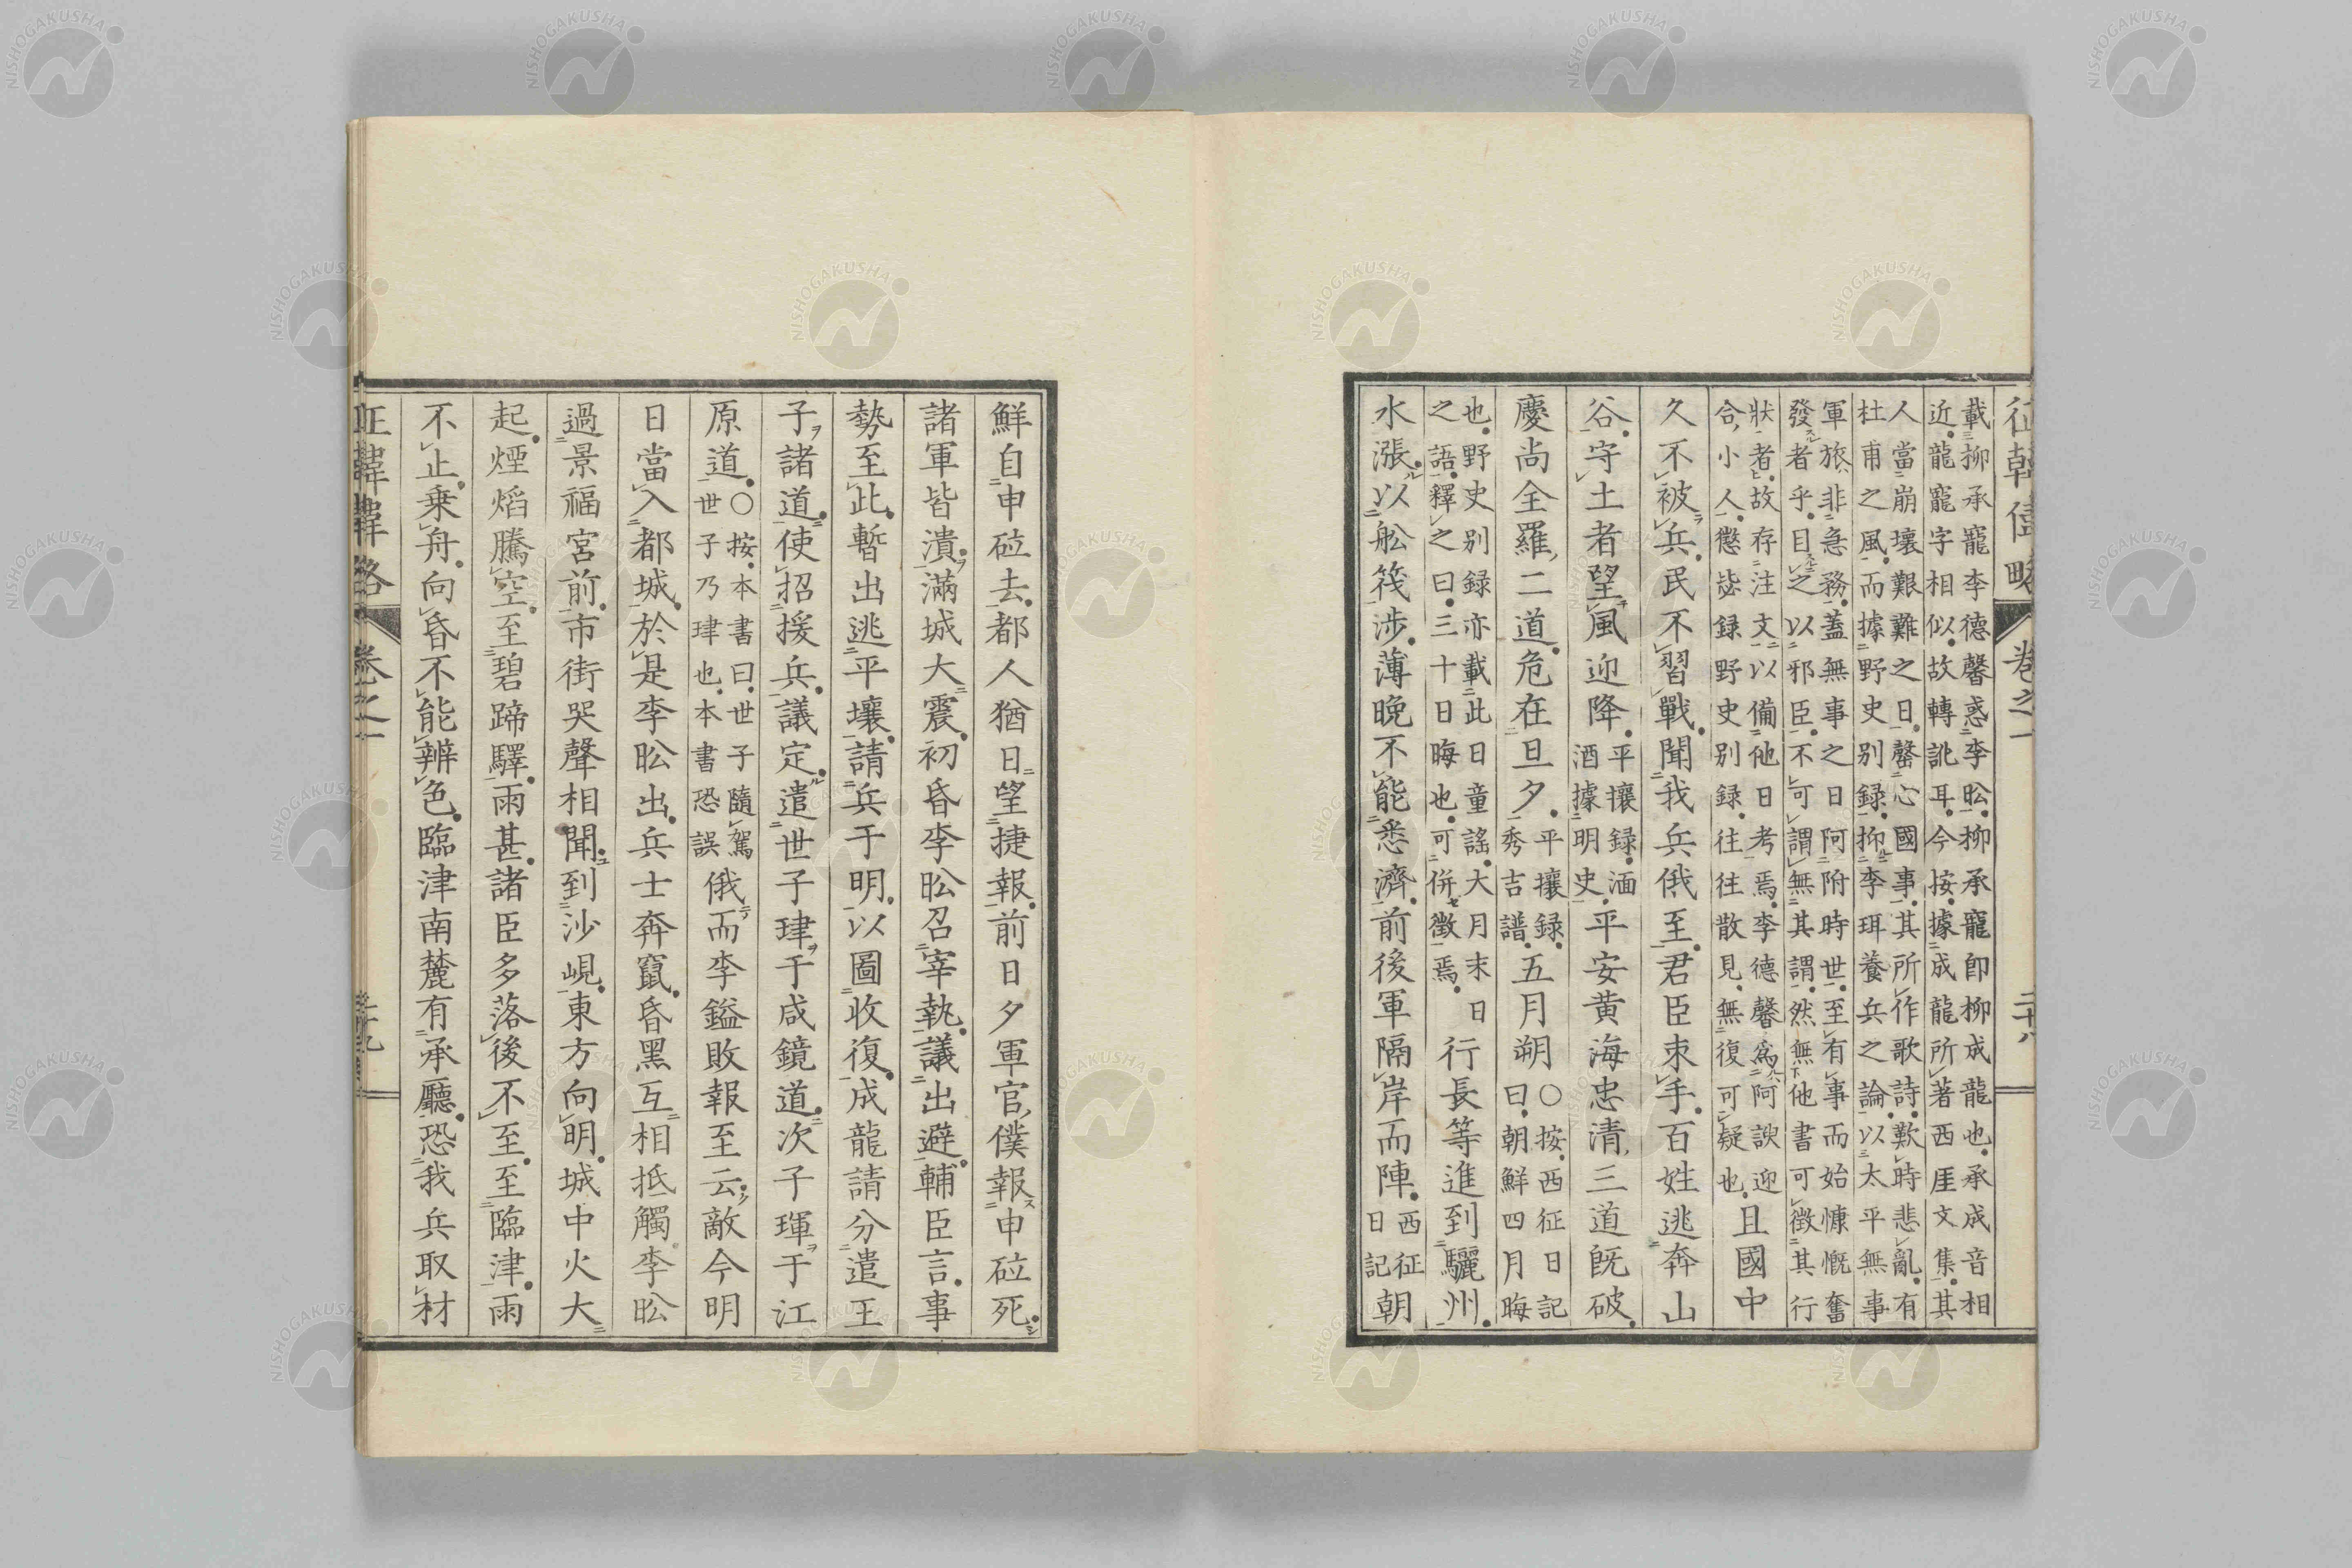 征韓偉略 卷之一 二十八
載柳承寵李德馨惑李昖柳承寵即柳成龍也承成音相
近龍寵字相似故轉訛耳今按據成龍所著西厓文集其
人當崩壞艱難之日罄心國事其所作歌詩歎時悲亂有
杜甫之風而據野史別錄抑李珥養兵之論以太平無事
軍旅非急務蓋無事之日阿附時世至有事而始慷慨奮
發者乎目之以邪臣不可謂無其謂然無他書可徵其行
狀者故存注文以備他日考焉李德馨為阿諛迎
合小人懲毖錄野史別錄往往散見無復可疑也且國中
久不被兵民不習戰聞我兵俄至君臣束手百姓逃奔山
谷守土者望風迎降平攘錄湎
酒據明史平安黃海忠清三道既破
慶尚全羅二道危在旦夕平攘錄
秀吉譜五月朔○按西征日記
曰朝鮮四月晦
也野史別錄亦載此日童謠大月末日
之語釋之曰三十日晦也可併徵焉行長等進到驪州
水漲以舩筏涉薄晚不能悉濟前後軍隔岸而陣西征
日記朝
鮮自申砬去都人猶日望捷報前日夕軍官僕報申砬死
諸軍皆潰滿城大震初昏李昖召宰執議出避輔臣言事
勢至此暫出逃平壤請兵于明以圖收復成龍請分遣王
子諸道使招援兵議定遣世子珒于咸鏡道次子琿于江
原道○按本書曰世子隨駕
世子乃珒也本書恐誤俄而李鎰敗報至云敵今明
日當入都城於是李昖出兵士奔竄昏黑互相抵觸李昖
過景福宮前市街哭聲相聞到沙峴東方向明城中火大
起煙焰騰空至碧蹄驛雨甚諸臣多落後不至至臨津雨
不止乗舟向昏不能辨色臨津南麓有承廳恐我兵取材